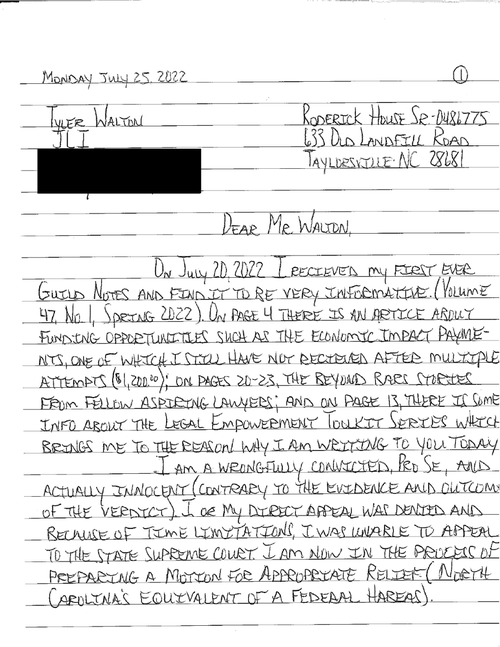 Monday July 25, 2022
1
Tyler Walton
JLI
Roderick House Sr-0486775
633 Old Landfill Road
Taylorsville-NC 28681
Dear Mr. Walton,
On July 20, 2022 I recieved my first ever
Guild Notes and find it to be very informative. (Volume
47, No. 1, Spring 2022). On page 4 there is an article about
funding opportunities such as the economic impact payme-
nts, one of which I still have not recieved after multiple
attempts ($1,200.00); on pages 20-23, the Beyond Bars stories
from fellow aspiring lawyers; and on page 13, there is some
info about the Legal Empowerment Toolkit Series which
brings me to the reason why I am writing to you today.
I am a wrongfully convicted, Pro Se, and
actually innocent (contrary to the evidence and outcome
of the verdict). My direct appeal was denied and
because of time limitations, I was unable to appeal
to the state supreme court. I am now in the process of
preparing a Motion for Appropriate Relief (North
Carolina's equivalent of a Federal Habeas).